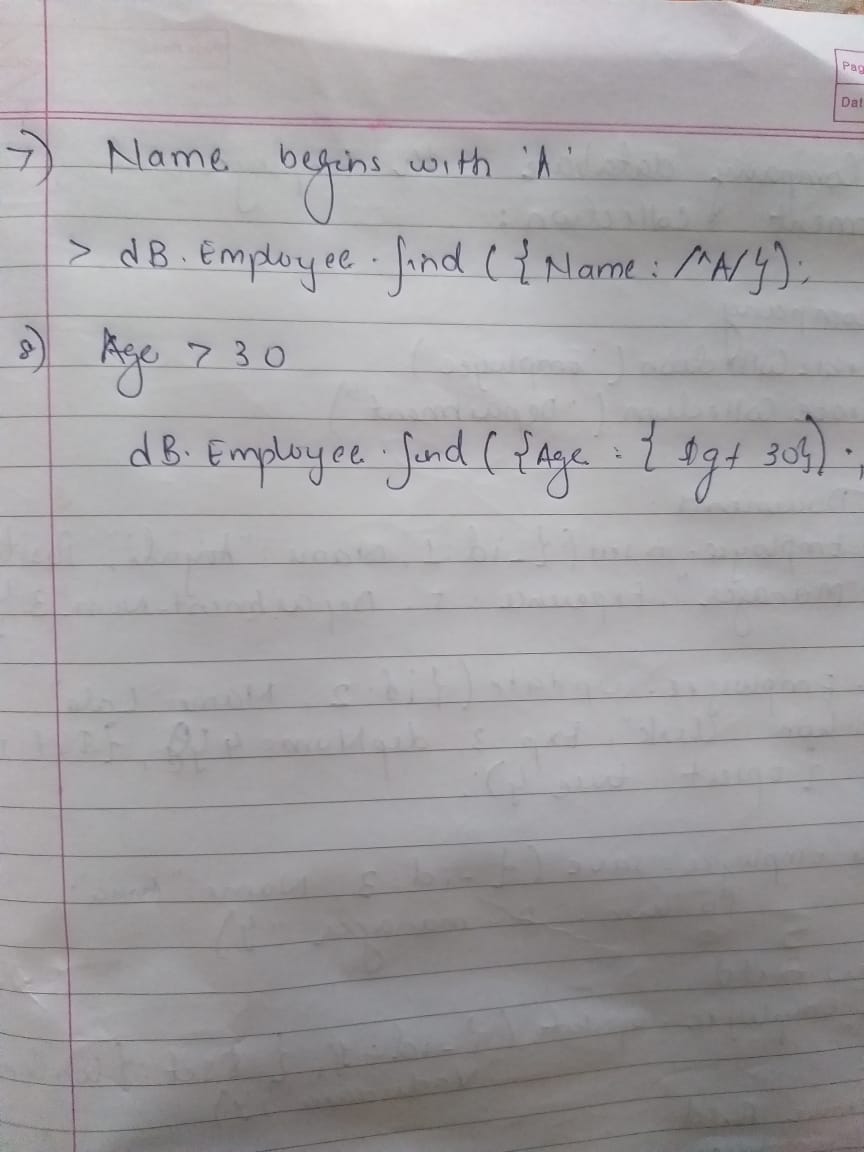 Pag
Dat
7) Name begins with 'A'
> dB.Employee.find({Name:/^A/});
8) Age > 30
dB.Employee.find({Age:{$gt 30});